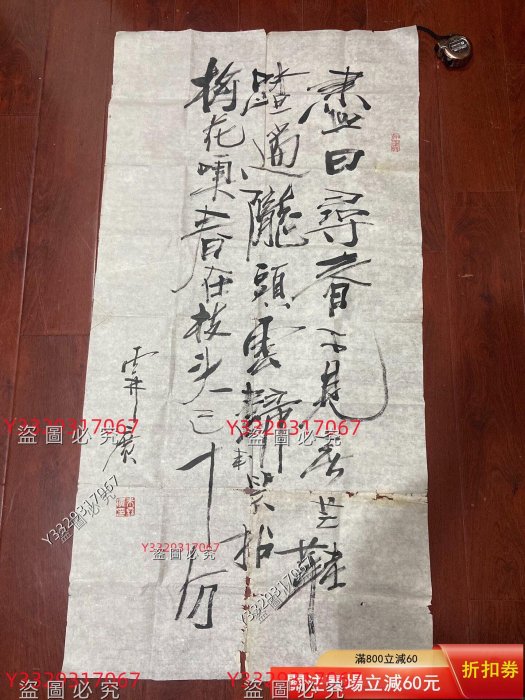 盡日尋春不見春芒鞋
踏遍隴頭雲歸來笑拈
梅花嗅春在枝头已十分
Y3329317067
盜圖必究
Y3329317067
盜圖必究
Y3329317067
盜圖必究
Y3329317067
盜圖必究
Y3329317067
盜圖必究
Y3329317067
盜圖必究
Y3329317067
盜圖必究
滿800立減60
關注賣場立減60元
折扣券